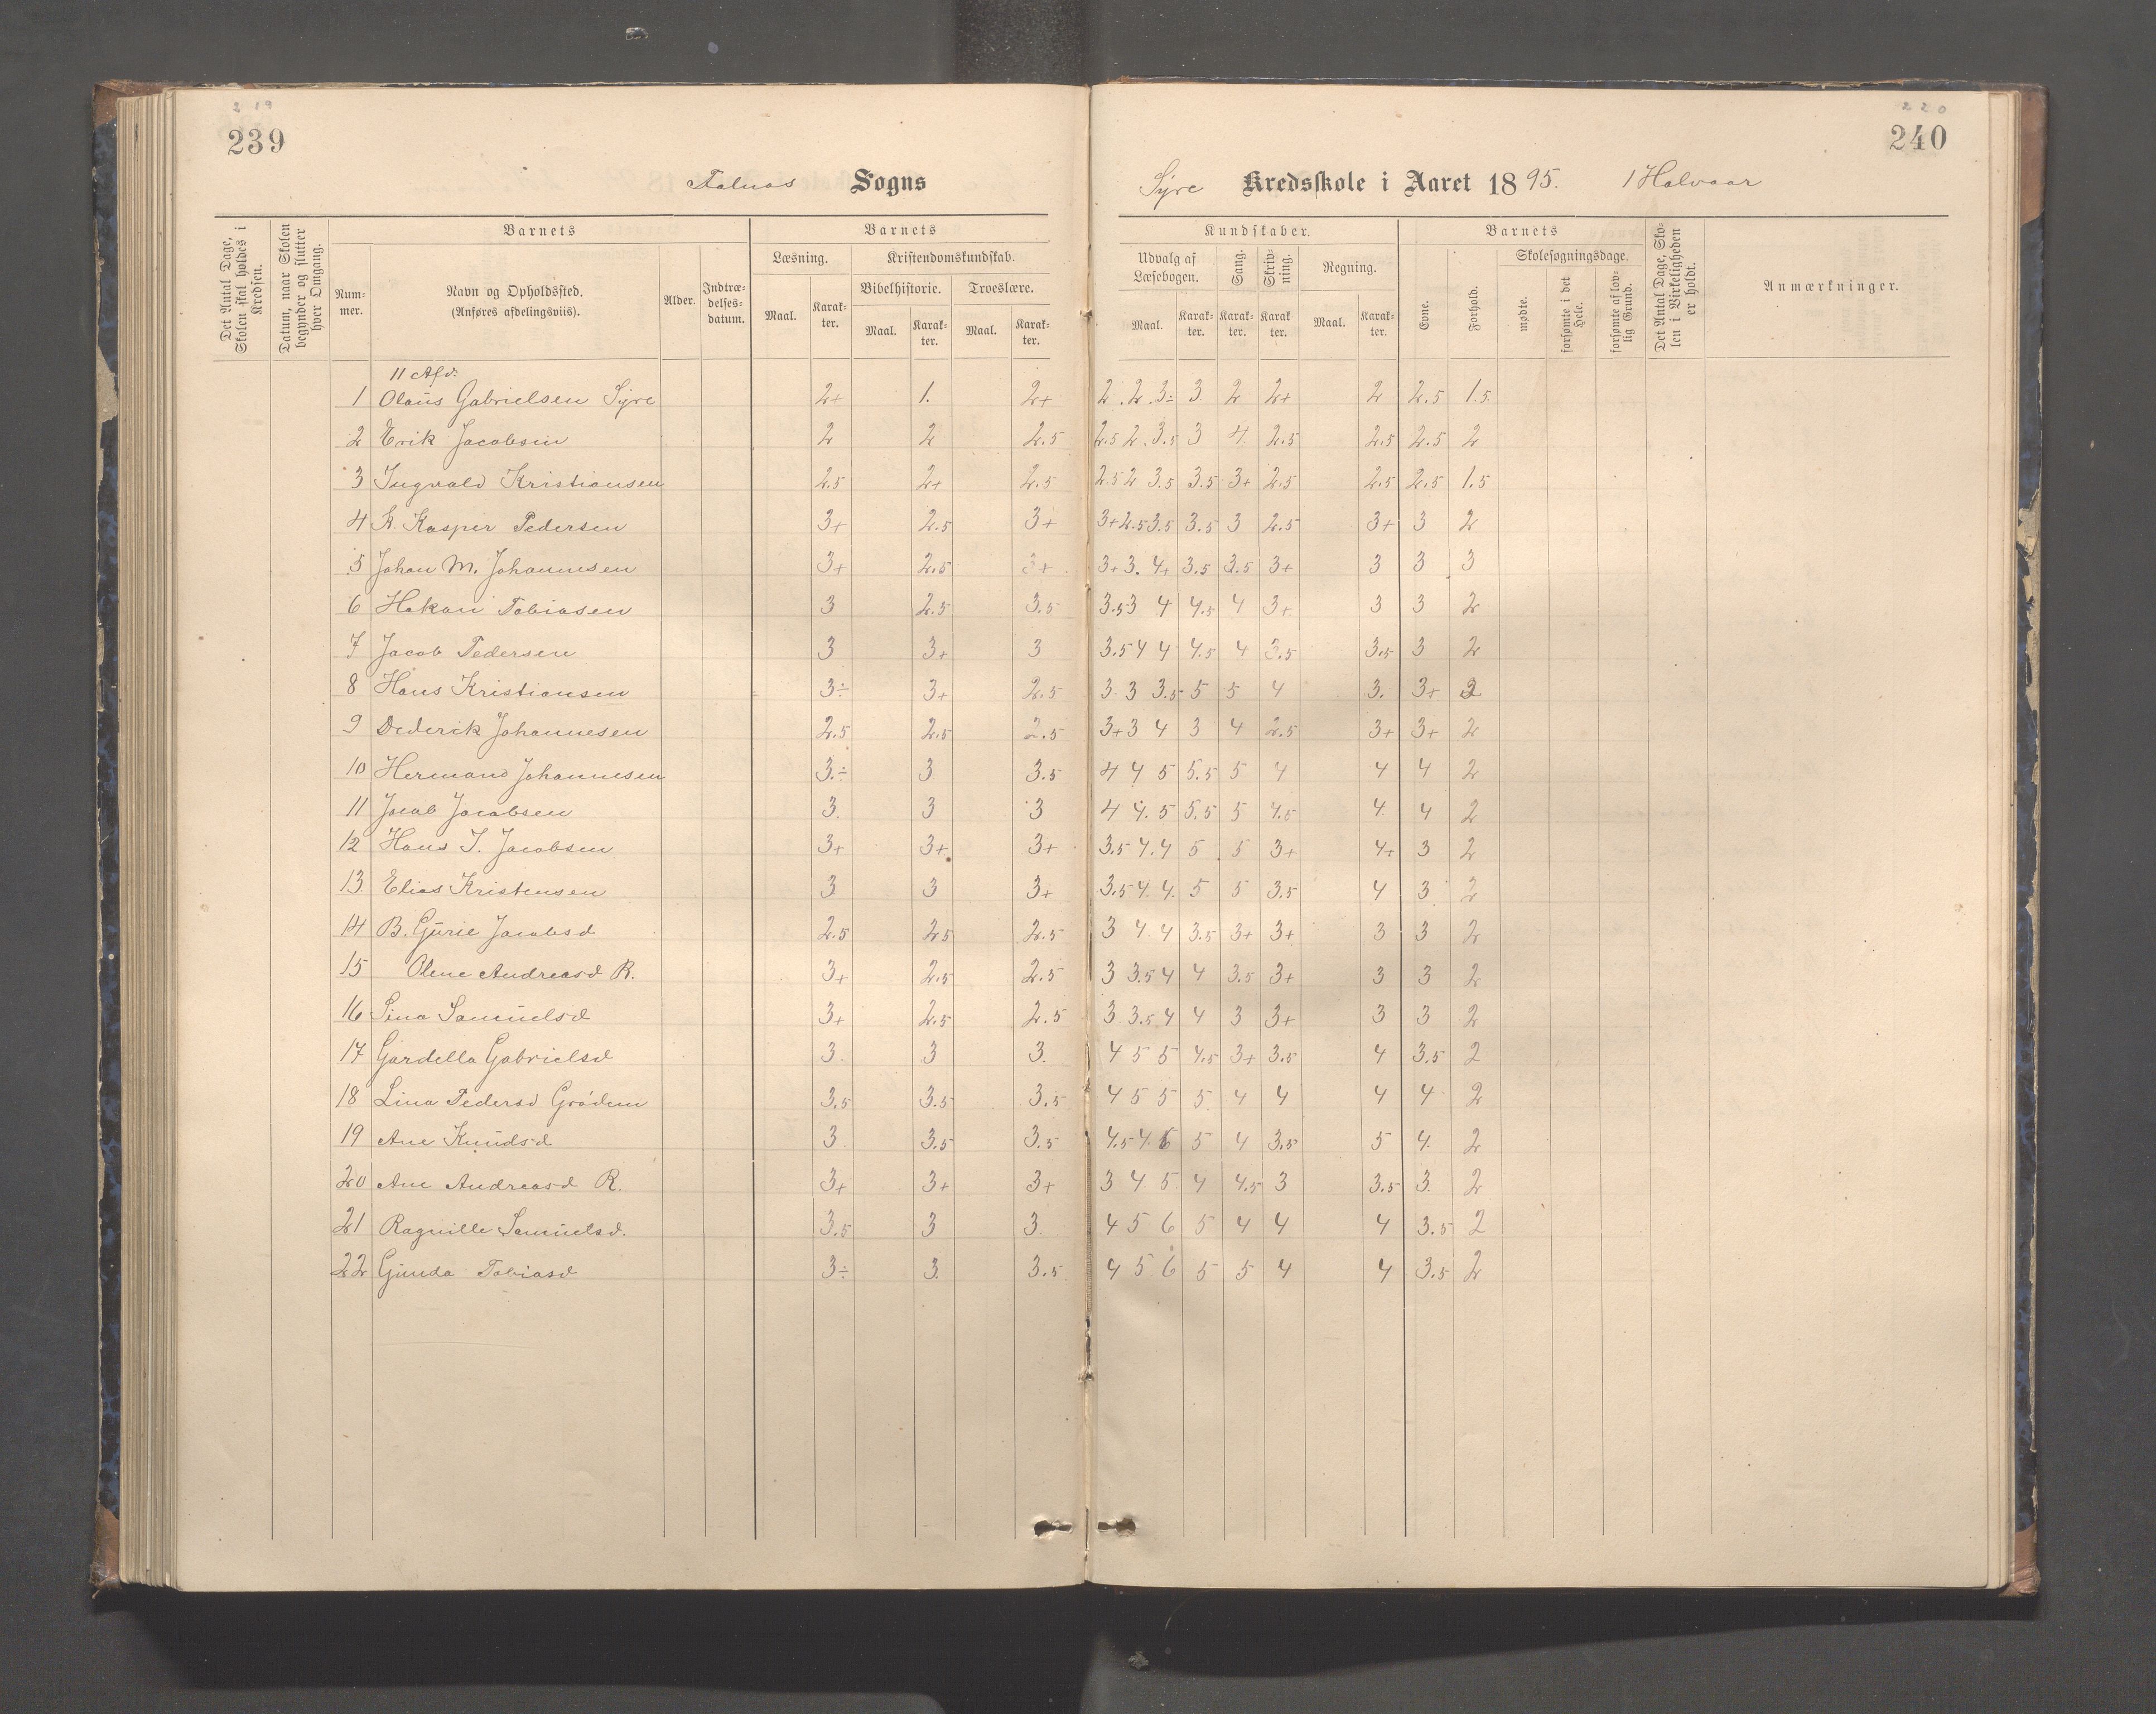 2 19
239
220
240
Falnæs Sogns
Syre Kredsskole i Aaret 1895. 1 Halvaar
Det Antal Dage, Skolen skal holdes i Kredsen.
Datum, naar Skolen begynder og slutter hver Omgang.
Barnets
Num-mer.
Navn og Opholdssted.
(Anføres afdelingsviis).
Alder.
Indtræ-delses-datum.
Barnets
Læsning.
Maal. Karak-ter.
Kristendomskundskab.
Bibelhistorie. Troeslære.
Maal. Karak-ter. Maal. Karak-ter.
Kundskaber.
Udvalg af Læsebogen.
Maal. Karak-ter.
Sang.
Karak-ter.
Skriv-ning.
Karak ter.
Regning.
Maal. Karak-ter.
Barnets
Evne.
Forhold.
Skolesøgningsdage.
mødte.
forsømte i det Hele.
forsømte af lov-lig Grund.
Det Antal Dage, Sko-len i Virkeligheden er holdt.
Anmærkninger.
11 Afd:
1 Olaus Gabrielsen Syre 2+ 1. 2+ 2. 2. 3÷ 3 2 2+ 2 2.5 1.5
2 Erik Jacobsen 2 2 2.5 2.5 2. 3.5 3 4. 2.5 2.5 2.5 2
3 Ingvald Kristiansen 2.5 2+ 2.5 2.5 2 3.5 3.5 3+ 2.5 2.5 2.5 1.5
4 K. Kasper Pedersen 3+ 2.5 3+ 3+ 2.5 3.5 3.5 3 2.5 3+ 3 2
5 Johan M. Johannesen 3+ 2.5 3+ 3+ 3. 4+ 3.5 3.5 3+ 3 3 3
6 Hakon Tobiasen 3 2.5 3.5 3.5 3 4 4.5 4 3+ 3 3 2
7 Jacob Pedersen 3 3+ 3 3.5 4 4 4.5 4 3.5 3.5 3 2
8 Hans Kristiansen 3÷ 3+ 2.5 3. 3 3.5 5 5 4 3. 3+ 2
9 Dederik Johannesen 2.5 2.5 2.5 3+ 3 4 3 4 2.5 3+ 3+ 2
10 Hermand Johannesen 3.÷ 3 3.5 4 4 5 5.5 5 4 4 4 2
11 Jacob Jacobsen 3. 3 3 4 4. 5 5.5 5 4.5 4. 4 2
12 Hans J. Jacobsen 3+ 3+ 3+ 3.5 4. 4 5 5 3+ 4+ 3 2
13 Elias Kristensen 3 3 3+ 3.5 4. 4. 5 5 3.5 4 3 2
14 B. Gurie Jacobsd 2.5 2.5 2.5 3 4. 4 3.5 3+ 3+ 3 3 2
15 Olene Andreasd R. 3+ 2.5 2.5 3 3.5 4 4 3.5 3+ 3 3 2
16 Sina Samuelsd 3+ 2.5 2.5 3 3.5 4 4 3 3+ 3 3 2
17 Gardella Gabrielsd 3. 3 3. 4 5 5 4.5 3+ 3.5 4 3.5 2
18 Lina Pedersd Grødem 3.5 3.5 3.5 4 5 5 5 4 4 4 4 2
19 Ane Knudsd 3. 3.5 3.5 4.5 4. 6 5 4 3.5 5 4. 2
20 Ane Andreasd R. 3+ 3+ 3+ 3 4 5 4 4.5 3 3.5 3. 2
21 Ragnille Samuelsd. 3.5 3 3. 4 5 6 5 4 4 4 3.5 2
22 Gunda Tobiasd 3÷ 3. 3.5 4 5 6 5 5 4 4 3.5 2